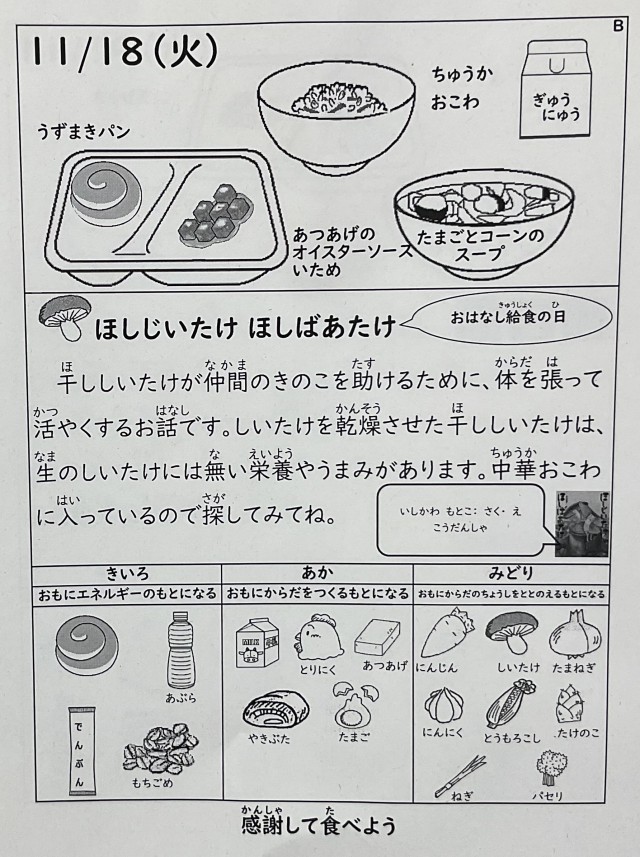 B
11/18(火)
ちゅうか
おこわ
ぎゅう
にゅう
うずまきパン
あつあげの
オイスターソース
いため
たまごとコーンの
スープ
ほしじいたけ ほしばあたけ
おはなし給食の日
きゅうしょく ひ
干ししいたけが仲間のきのこを助けるために、体を張って
ほ なかま たす からだ は
活やくするお話です。しいたけを乾燥させた干ししいたけは、
かつ はなし かんそう ほ
生のしいたけには無い栄養やうまみがあります。中華おこわ
なま な えいよう ちゅうか
に入っているので探してみてね。
はい さが
いしかわ もとこ: さく・え
こうだんしゃ
きいろ
おもにエネルギーのもとになる
あか
おもにからだをつくるもとになる
みどり
おもにからだのちょうしをととのえるもとになる
あぶら
でんぷん
もちごめ
MILK
とりにく
あつあげ
やきぶた
たまご
にんじん
しいたけ
たまねぎ
にんにく
とうもろこし
たけのこ
ねぎ
パセリ
感謝して食べよう
かんしゃ た